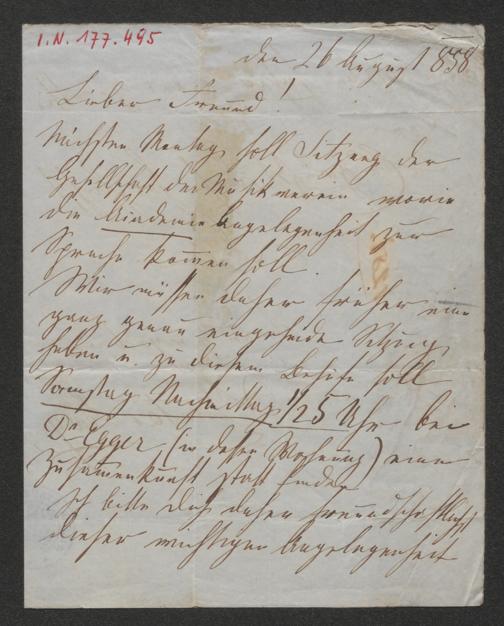 I.N. 177.495
den 26 August 1858
Lieber Freund!
Nächsten Montag soll Sitzung der
Gesellschaft der Musikverein worin
die Akademie Angelegenheit zur
Sprache kommen soll.
Wir müssen daher früher eine
ganz genau eingehende Sitzung
haben u. zu diesem Behufe soll
Samstag Nachmittag 1/2 5 Uhr bei
Dr Egger (in dessen Wohnung) eine
Zusammenkunft statt finden
Ich bitte dich daher freundschaftlichst
dieser wichtigen Angelegenheit